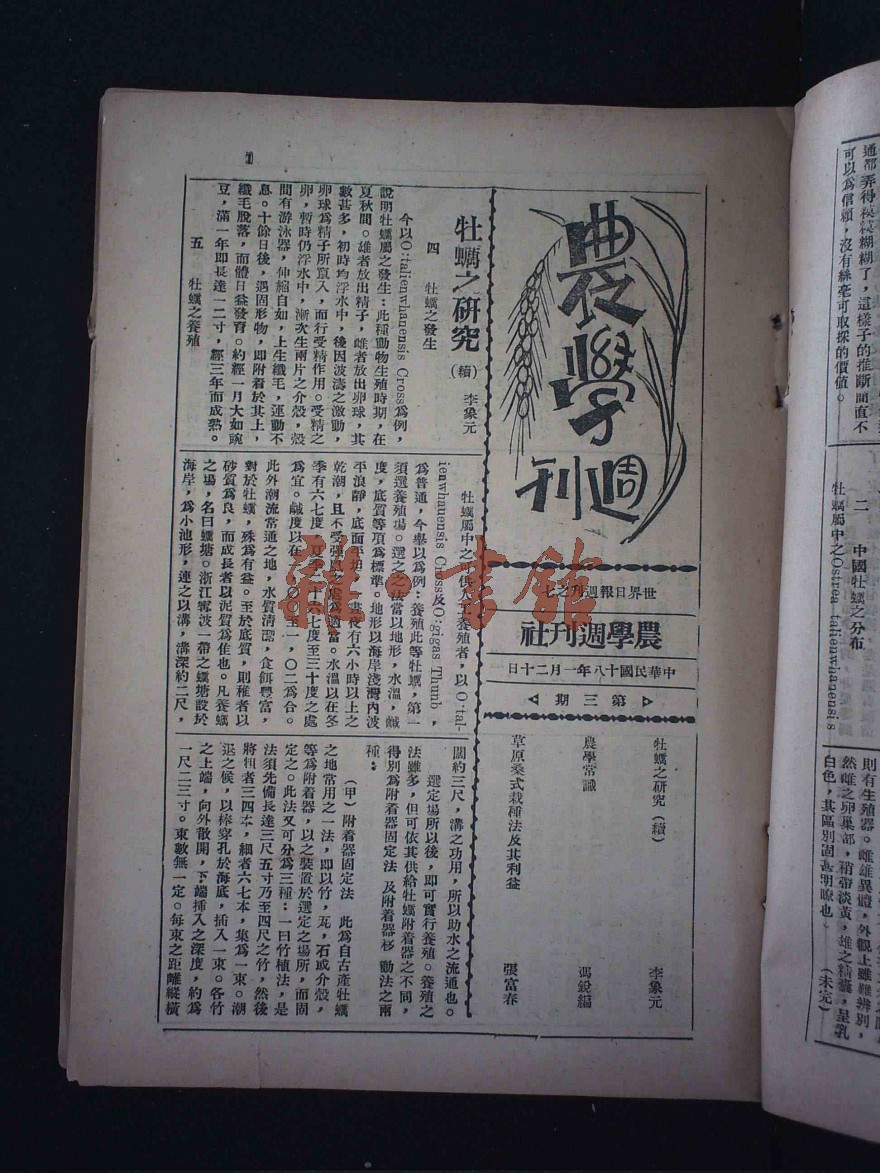 農學
週刊
世界日報週刊之七
農學週刊社
中華民國十八年一月二十日
第三期
牡蠣之研究(續) 李象元
農學常識 馮銳編
草原桑式栽種法及其利益 張富春
牡蠣之研究(續) 李象元
四 牡蠣之發生
今以O:talienwhanensis Cross為例,
說明牡蠣屬之發生:此種動物生殖時期,在
夏秋間。雄者放出精子,雌者放出卵球,其
數甚多,初時均浮水中,後因波濤之激動,
卵球為精子所竄入,而行受精作用。受精之
卵,暫時仍浮水中,漸次生兩片之介殼,殼
間有游泳器,伸縮自如,上生纖毛,運動不
息。十餘日後,遇固形物,即附着於其上,
纖毛脫落,而體日益發育。約經一月大如豌
豆,滿一年即長達一二寸,經三年而成熟。
五 牡蠣之養殖
牡蠣屬中之可供人工養殖者,以O:tal-
ienwhanensis Cross及O:gigas Thunb,
為普通,今舉以為例:養殖此等牡蠣,第一
須選養殖場。選之之法當以地形,水溫,鹹
度,底質等項為標準。地形以海岸淺灣內波
平浪靜,底面平坦,晝夜有六小時以上之
乾潮,且不受强風之處為適當。水溫以在冬
季有六七度,夏季二十六七度至三十度之處
為宜。鹹度以在一,〇〇至一,〇二為合。
此外潮流常通之地,水質清潔,食餌豐富,
對於牡蠣,殊為有益。至於底質,則稚者以
砂質為良,而成長者以泥質為佳也。凡養蠣
之場,名曰蠣塘。浙江甯波一帶之蠣塘設於
海岸,為小池形,連之以溝,溝深約二尺,
闊約三尺,溝之功用,所以助水之流通也。
選定場所以後,即可實行養殖。養殖之
法雖多,但可依其供給牡蠣附着器之不同,
得別為附着器固定法 及附着器移 動法之兩
種:
(甲)附着器固定法 此為自古產牡蠣
之地常用之一法,即以竹,瓦,石或介殼,
等為附着器,以之裝置於選定之場所,而固
定之。此法又可分為三種:一曰竹植法,是
法須先備長達三尺五寸乃至四尺之竹,然後
將粗者三四本,細者六七本,集為一束。潮
退之候,以棒穿孔於海底,插入一束。各竹
之上端,向外散開,下端插入之深度,約為
一尺二三寸。束數無一定。每束之距離縱橫
1
通都弄得模模糊糊了,這樣子的推斷簡直不
可以為信賴,沒有絲毫可取採的價值。
二 中國牡蠣之分布
牡蠣屬中之Ostrea talienwhanensis
則有生殖器。雌雄異體,外觀上雖難辨別,
然雌之卵巢部,稍帶淡黃,雄之精囊,呈乳
白色,其區別固甚明瞭也。 (未完)
雜·書館